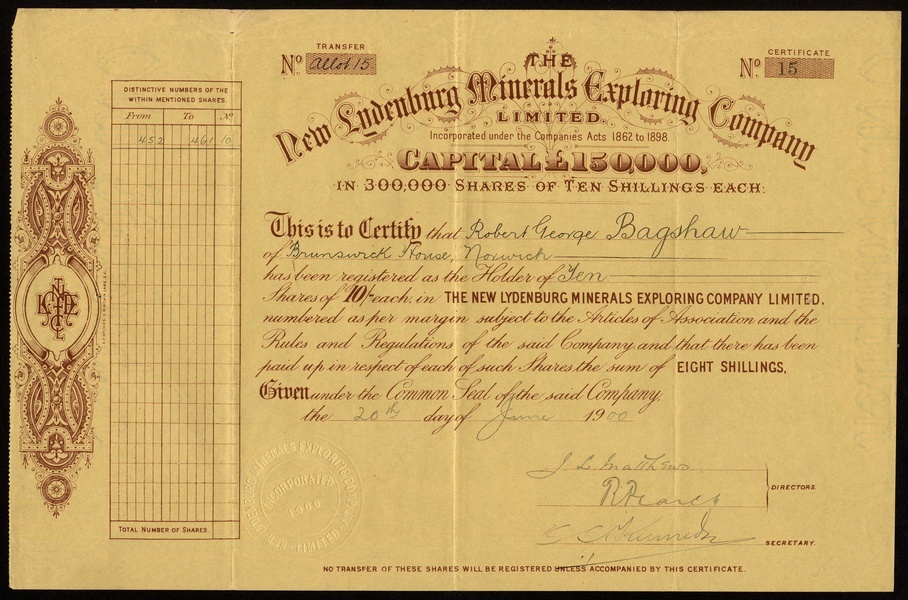 TRANSFER
Nº Allot 15
CERTIFICATE
Nº 15
THE
New Lydenburg Minerals Exploring Company
LIMITED.
Incorporated under the Companies Acts 1862 to 1898.
CAPITAL £150,000,
IN 300,000 SHARES OF TEN SHILLINGS EACH:
DISTINCTIVE NUMBERS OF THE
WITHIN MENTIONED SHARES.
From To Nº
452 461 10
TOTAL NUMBER OF SHARES.
This is to Certify that Robert George Bagshaw
of Brunswick House, Norwich
has been registered as the Holder of Ten
Shares of 10/- each, in THE NEW LYDENBURG MINERALS EXPLORING COMPANY LIMITED.
numbered as per margin subject to the Articles of Association and the
Rules and Regulations of the said Company, and that there has been
paid up in respect of each of such Shares, the sum of EIGHT SHILLINGS,
Given under the Common Seal of the said Company,
the 20th day of June 1900
J. L. Matthews
DIRECTORS.
SECRETARY.
INCORPORATED
1900
LIMITED
NO TRANSFER OF THESE SHARES WILL BE REGISTERED UNLESS ACCOMPANIED BY THIS CERTIFICATE.